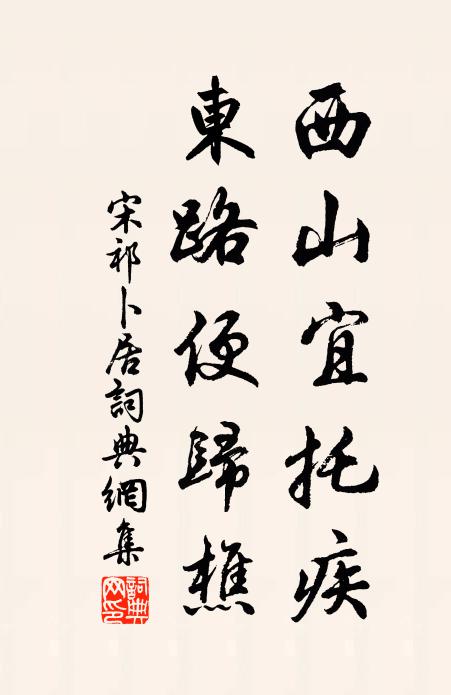 西山宜托疾
東路便歸樵
宋祁卜居詞典網集
詞典网印